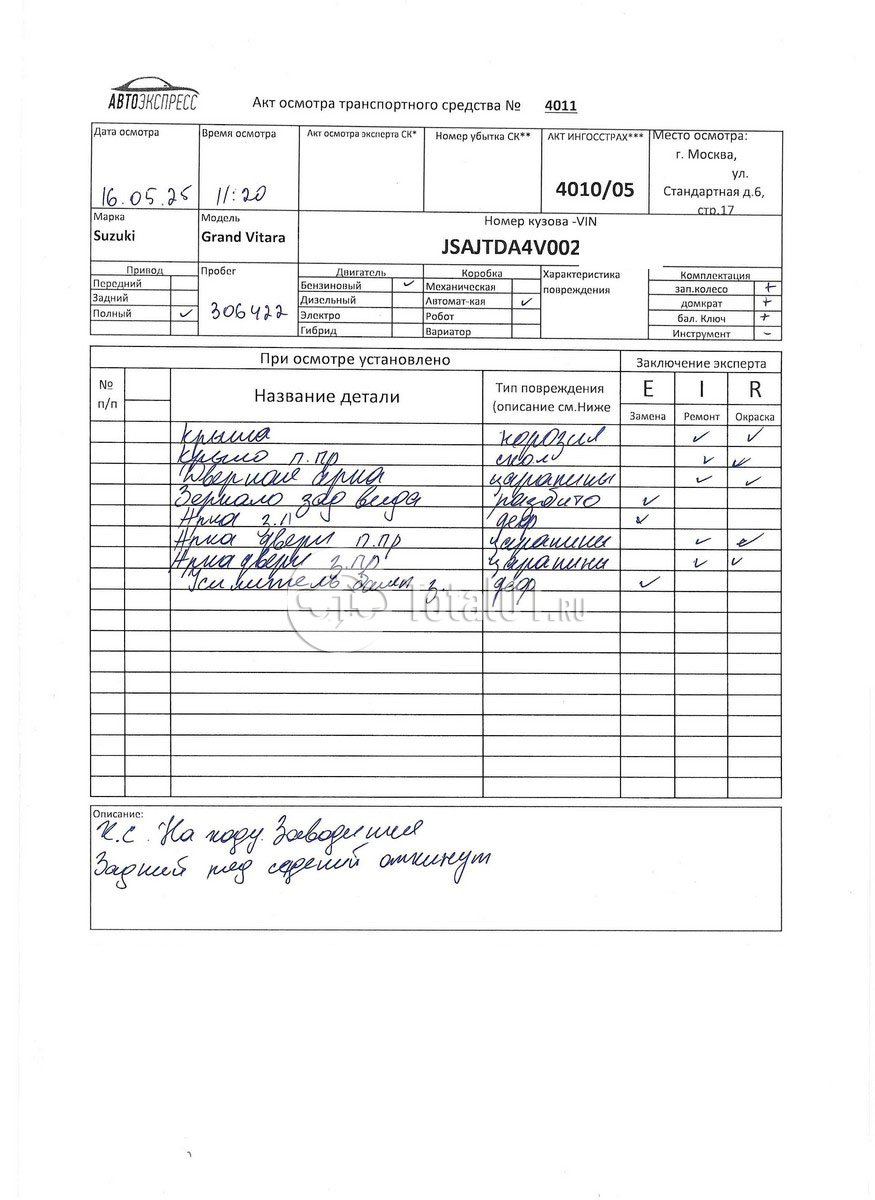 АВТОЭКСПРЕСС
Акт осмотра транспортного средства № 4011
Дата осмотра Время осмотра Акт осмотра эксперта СК* Номер убытка СК** АКТ ИНГОССТРАХ*** Место осмотра:
г. Москва,
ул.
16.05.25 11:20 4010/05 Стандартная д.6,
стр.17
Марка Модель Номер кузова -VIN
Suzuki Grand Vitara JSAJTDA4V002
Привод Пробег Двигатель Коробка Характеристика Комплектация
Передний Бензиновый ✓ Механическая повреждения зап.колесо +
Задний Дизельный Автомат-кая ✓ домкрат +
Полный ✓ 306422 Электро Робот бал. Ключ +
Гибрид Вариатор Инструмент -
При осмотре установлено Заключение эксперта
№ п/п Название детали Тип повреждения (описание см.Ниже E I R
Замена Ремонт Окраска
Крыша корозия ✓ ✓
Крыло п.пр скол ✓ ✓
Дверная арка царапины ✓ ✓
Зеркало зад вида разбито ✓
Арка з.л деф ✓
Арка двери п.пр царапины ✓ ✓
Арка двери з.пр царапини ✓ ✓
Усилитель з. деф ✓
Total01.RU
Описание:
К.С. На ходу. Заводится
Задний ряд сидений откинут